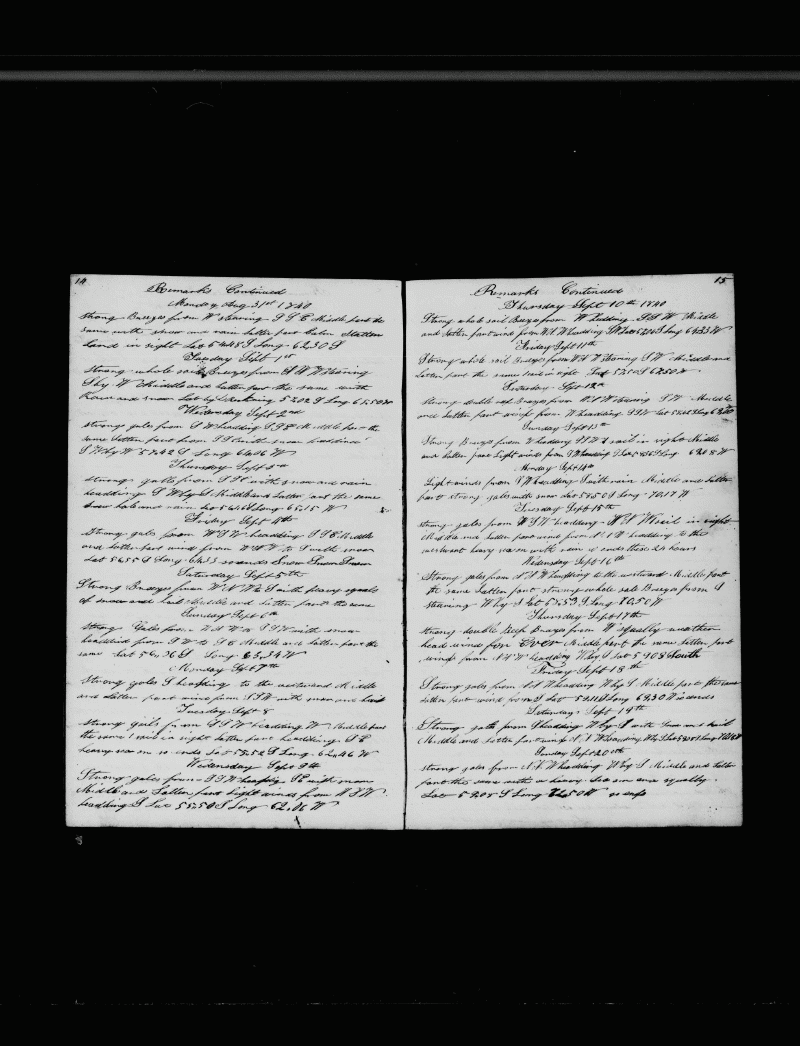 14
Remarks Continued
Monday Aug 31st 1840
Strong Breezes from W stearing S S E Middle part the
same with snow and rain latter part Calm Statten
Land in sight Lat 54,45 S Long 62,30
Tuesday Sept 1st
strong whole sail Breezes from N N W stearing
S by W Middle and latter part the same with
snow Lat by Reckning 55,02 S Long 61,55 W
Wednesday Sept 2nd
strong gales from S W headding S S E Middle part the
same latter part from S S with snow headding
S W by W 57,42 S Long 64,06 W
Thursday Sept 3d
strong gales from S with snow and rain
headding S W by S Middle and Latter part the same
snow hale and rain Lat 56,46 S Long 65,15 W
Friday Sept 4th
Strong gales from W S W headding S S E Middle
and latter part wind from W N W to S with snow
Lat 56,55 S Long 64,33 so ends Snow Snow Snow
Saturday Sept 5th
Strong Breezes from W N W to S with heavy squals
of snow and hail Middle and Latter part the same
Sunday Sept 6th
strong Gales from to S S W with snow
headdind from S W to S E Middle and Latter part the
same Lat 56,36 S Long 63,34 W
Monday Sept 7th
Strong gales S heading to the westward Middle
and Latter part wind from S S W with snow and hail
Tuesday Sept 8
Strong gails from S S W headding W Middle part
the same 1 sail in sight latter part headding S E
heavy sea on so ends Lat 58,52 S Long 62,46 W
Wednesday Sept 9th
Strong gales from S S W heading S E with snow
Middle and Latter part Light winds from W S W
headding S Lat 58,50 S Long 62,06 W
15
Remarks Continued
Thursday Sept 10th 1840
Strong whole sail Breezes from W headding Middle
and Latter part wind from headding Long 64,33 W
Friday Sept 11th
Strong whole sail Breezes from stearing S W Middle and
Latter part the same 1 sail in sight Lat S 67,50 W
Saturday Sept 12th
strong double reef Breezes from stearing S W Middle
and Latter part wind from headding S S W Lat Long
Sunday Sept 13th
Strong Breezes from W headding 1 sail in sight Middle
and Latter part Light winds from headding S Lat Long 69,08 W
Monday Sept 14th
Light winds from S W headding S with rain Middle and Latter
part strong gales with snow Lat 58,50 S Long 70,17 W
Tuesday Sept 15th
strong gales from W S W headding N N W 1 sail in sight
Middle and Latter part wind from headding to the
westward heavy sea on with rain so ends these 24 hours
Wednesday Sept 16th
Strong gales from headding to the westward Middle part
the same Latter part strong whole sale Breezes from S
stearing W by S Lat 58,53 S Long 70,50 W
Thursday Sept 17th
strong double Reef Breezes from W squally another
head wind for Ever Middle part the same Latter part
wind from headding W by S Lat 59,08 South
Friday Sept 18th
Strong gales from headding W by S Middle part the same
Latter part wind from S Lat 59,11 S Long 69,30 W so ends
Saturday Sept 19th
Strong gales from S headding W by S with Snow and hail
Middle and Latter part wind headding W by S Lat Long
Sunday Sept 20th
strong gales from headding W by S Middle and Latter
part the same with a heavy Sea on and squally
Lat 59,08 S Long 72,50 W so ends